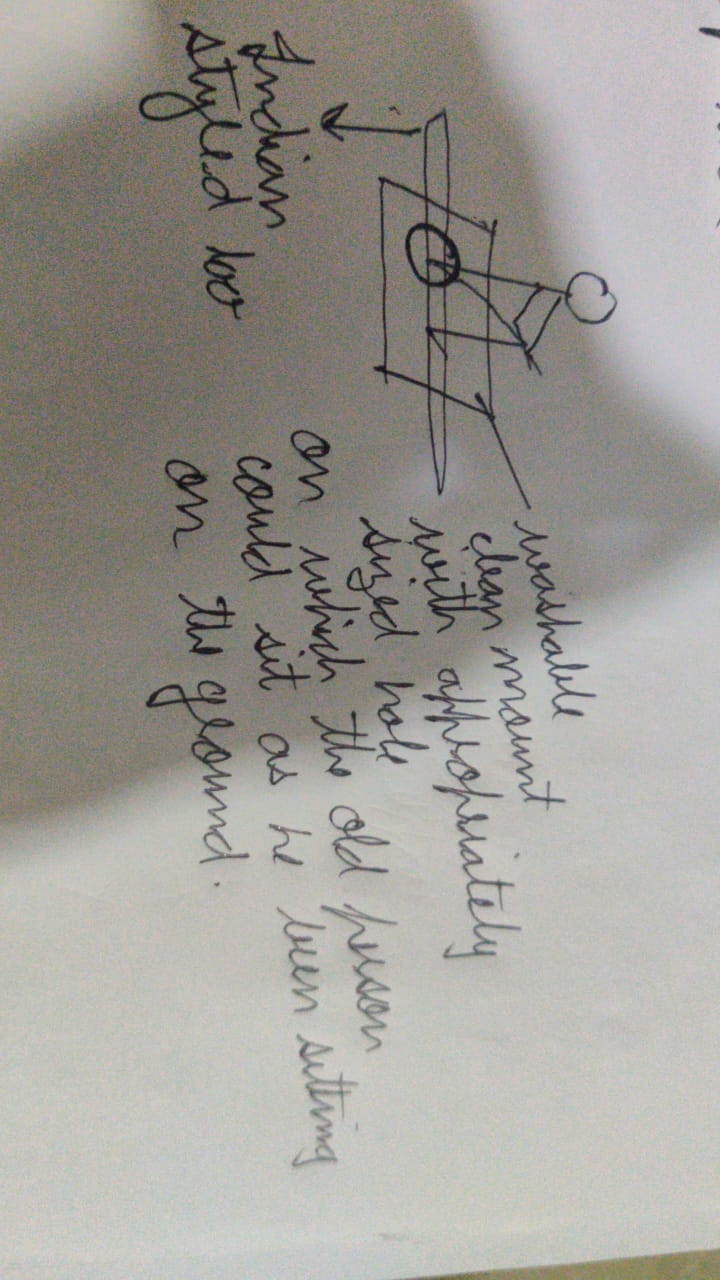 washable
clean mount
with appropriately
sized hole
on which the old person
could sit as he been sitting
on the ground.
Indian
styled loo